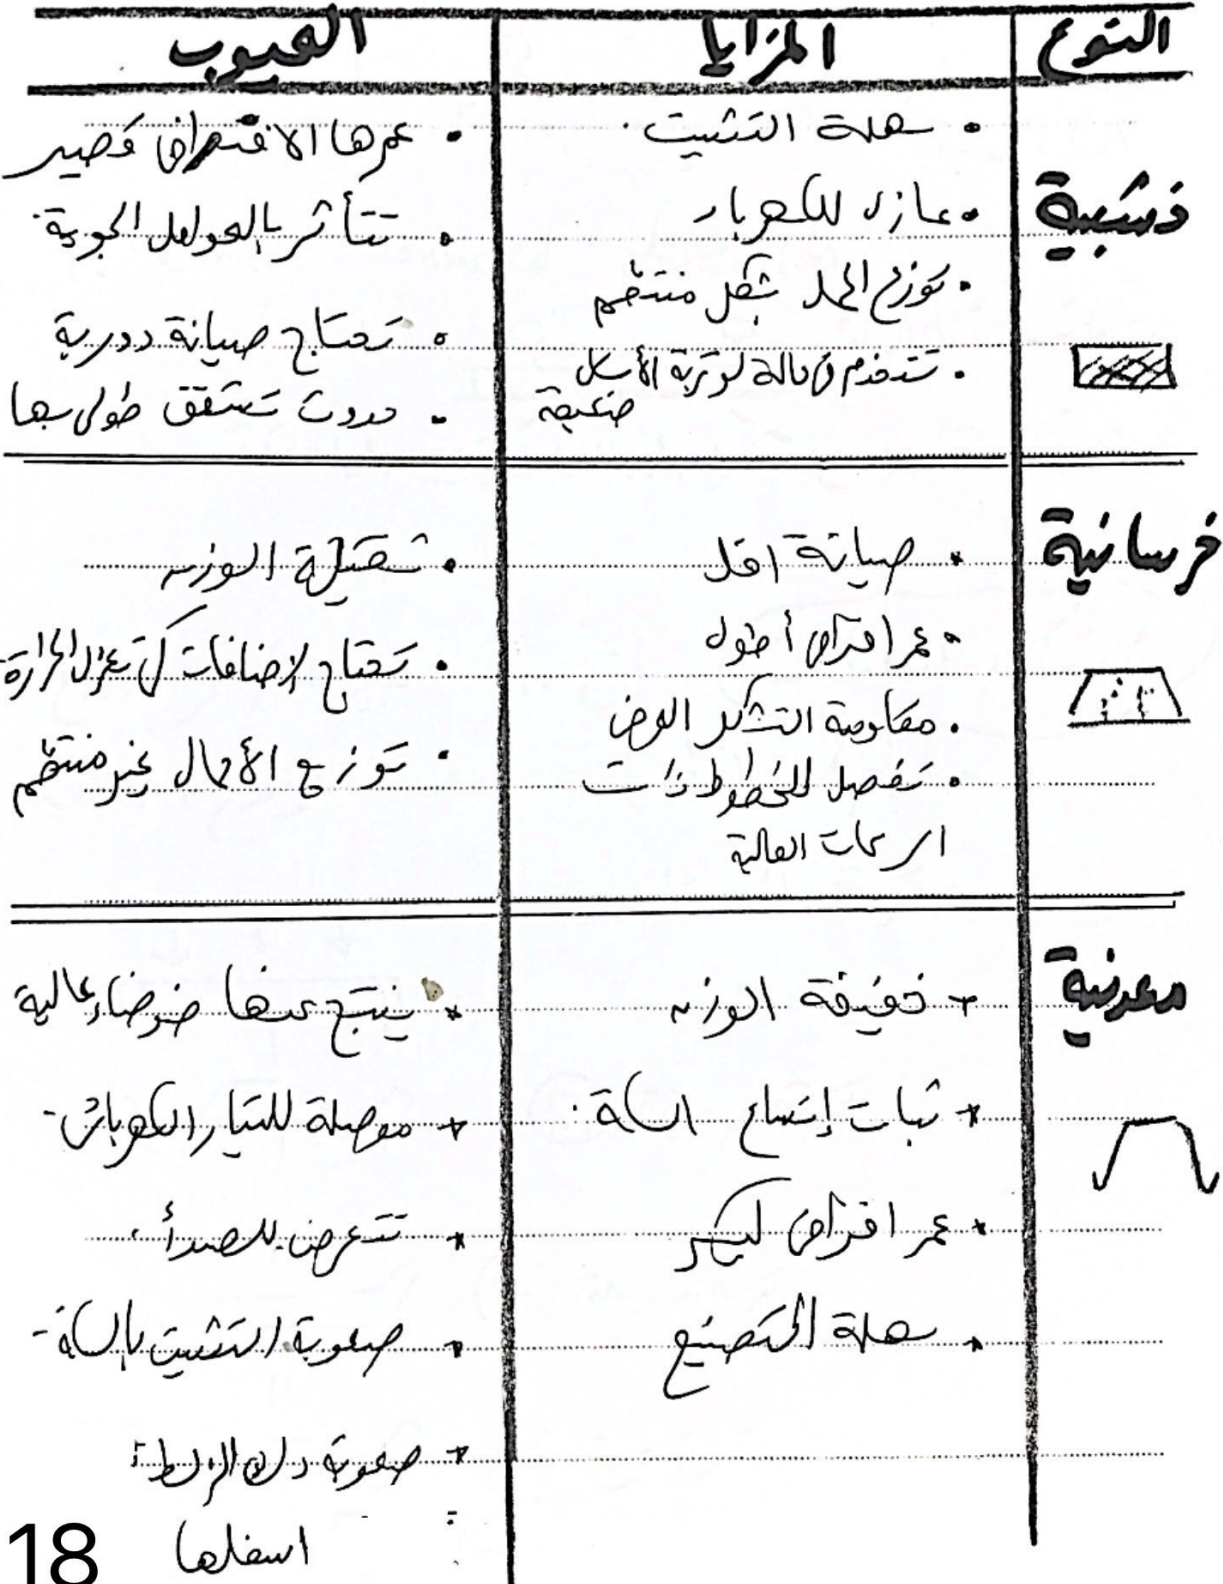 النوع المزايا العيوب
خشبية
• سهلة التثبيت.
• عازل للكهرباء
• توزع الحمل بشكل منتظم
• تستخدم في حالة لو تربة الأساس
ضعيفة
• عمرها الافتراضي قصير
• تتأثر بالعوامل الجوية.
• تحتاج صيانة دورية
• حدوث تشقق طولي بها
خرسانية
• صيانة اقل
• عمر افتراضي أطول
• مقاومة التشكل العرضي
• تفضل للخطوط ذات
السرعات العالية
• ثقيلة الوزن
• تحتاج لإضافات كي تعزل الحرارة
• توزيع الأحمال غير منتظم
معدنية
+ خفيفة الوزن
+ ثبات إتساع السكة.
+ عمر افتراضي كبير
+ سهلة التصنيع
+ ينتج عنها ضوضاء عالية
+ موصلة للتيار الكهربائي.
+ تتعرض للصدأ.
+ صعوبة التثبيت بالسكة.
+ صعوبة دك الزلط
اسفلها
18